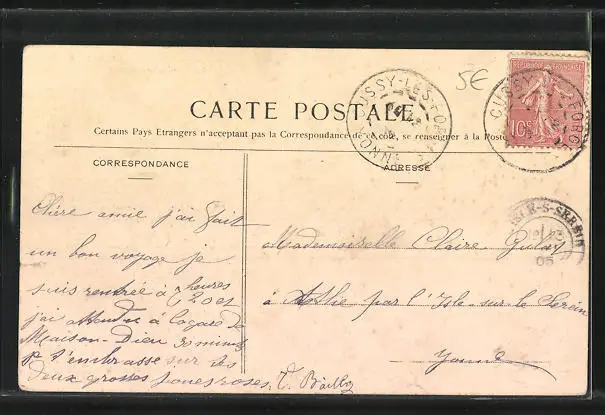 5€
CARTE POSTALE
Certains Pays Etrangers n'acceptant pas la Correspondance de ce côté, se renseigner à la Poste
CORRESPONDANCE
ADRESSE
CUSSY-LES-FORGES
YONNE
REPUBLIQUE FRANÇAISE
10c
CUSSY FORGES
ISLE-S-SEREIN
05
Chère amie j'ai fait
un bon voyage je
suis rentrée à 7 heures
20 et
j'ai attendu à la gare de
Maison-Dieu 30 minutes
je t'embrasse sur tes
deux grosses joues roses.
Mademoiselle Claire
à Athie par l'Isle-sur-le Serein
Yonne